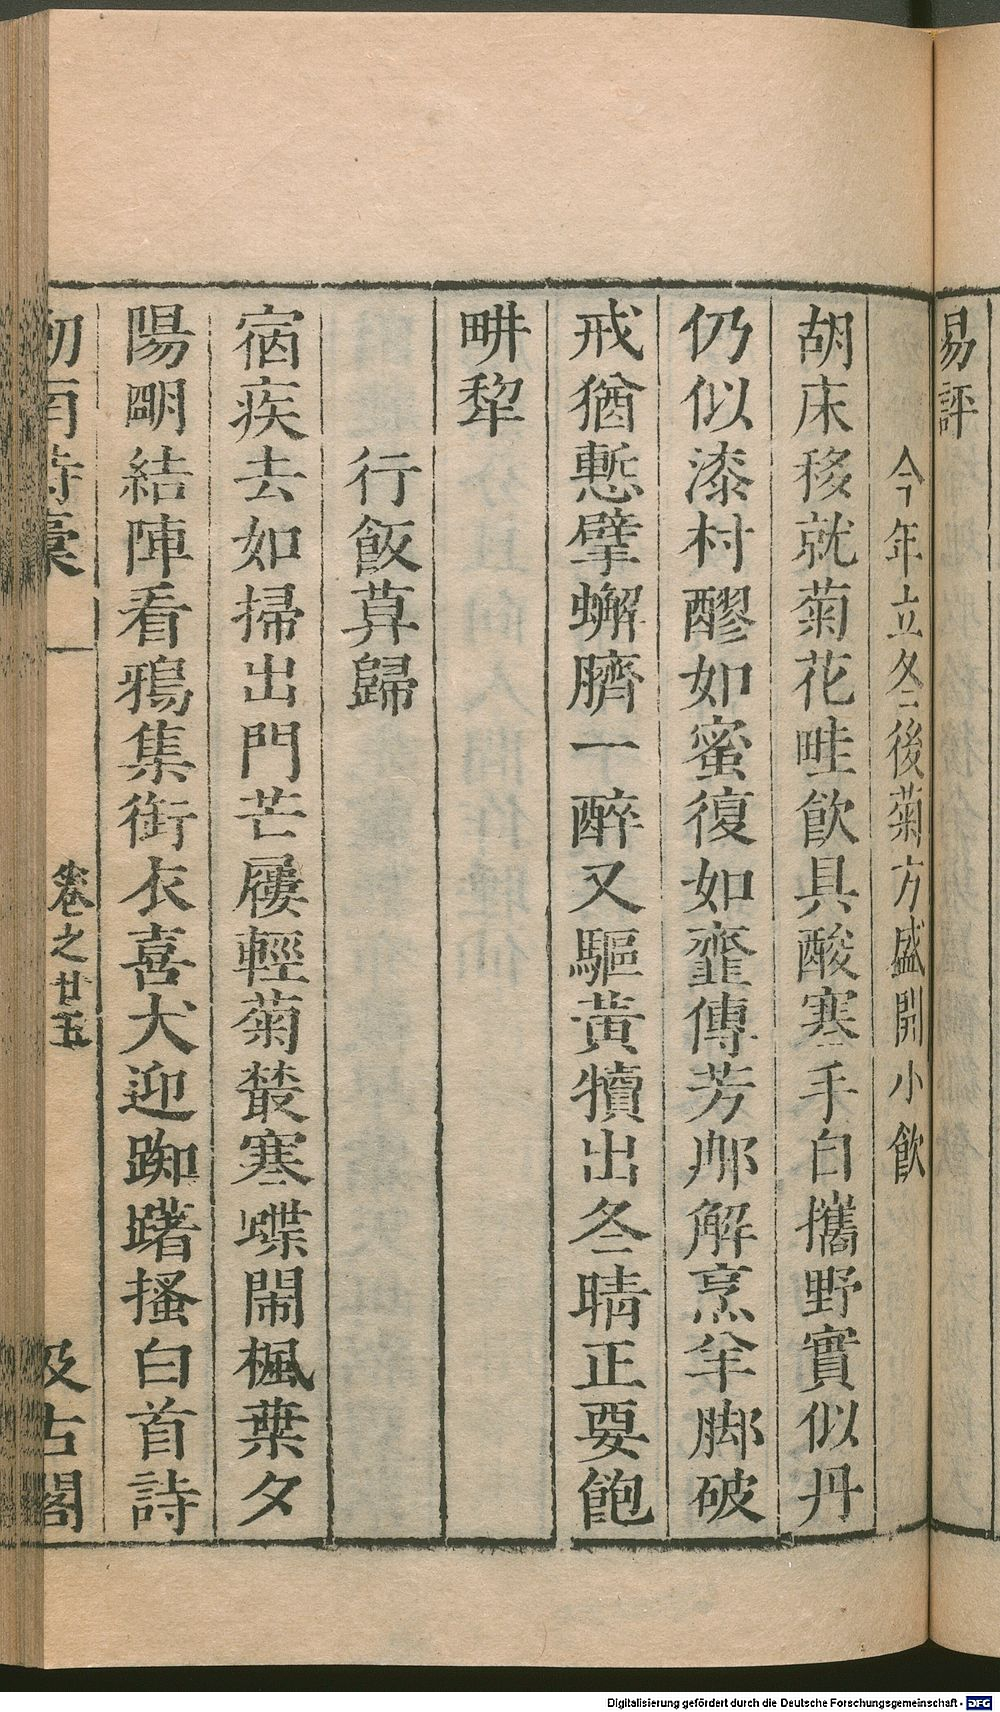 易評
今年立冬後菊方盛開小飲
胡床移就菊花畦飲具酸寒手自攜野實似丹
仍似漆村醪如蜜復如虀傳芳那解烹羊脚破
戒猶慙擘蠏臍一醉又驅黃犢出冬晴正要飽
畊犂
行飯莫歸
宿疾去如掃出門芒屨輕菊叢寒蝶鬧楓葉夕
陽朙結陣看鴉集銜衣喜犬迎踟躇搔白首詩
劒南詩稾
卷之廿五
汲古閣
Digitalisierung gefördert durch die Deutsche Forschungsgemeinschaft - DFG